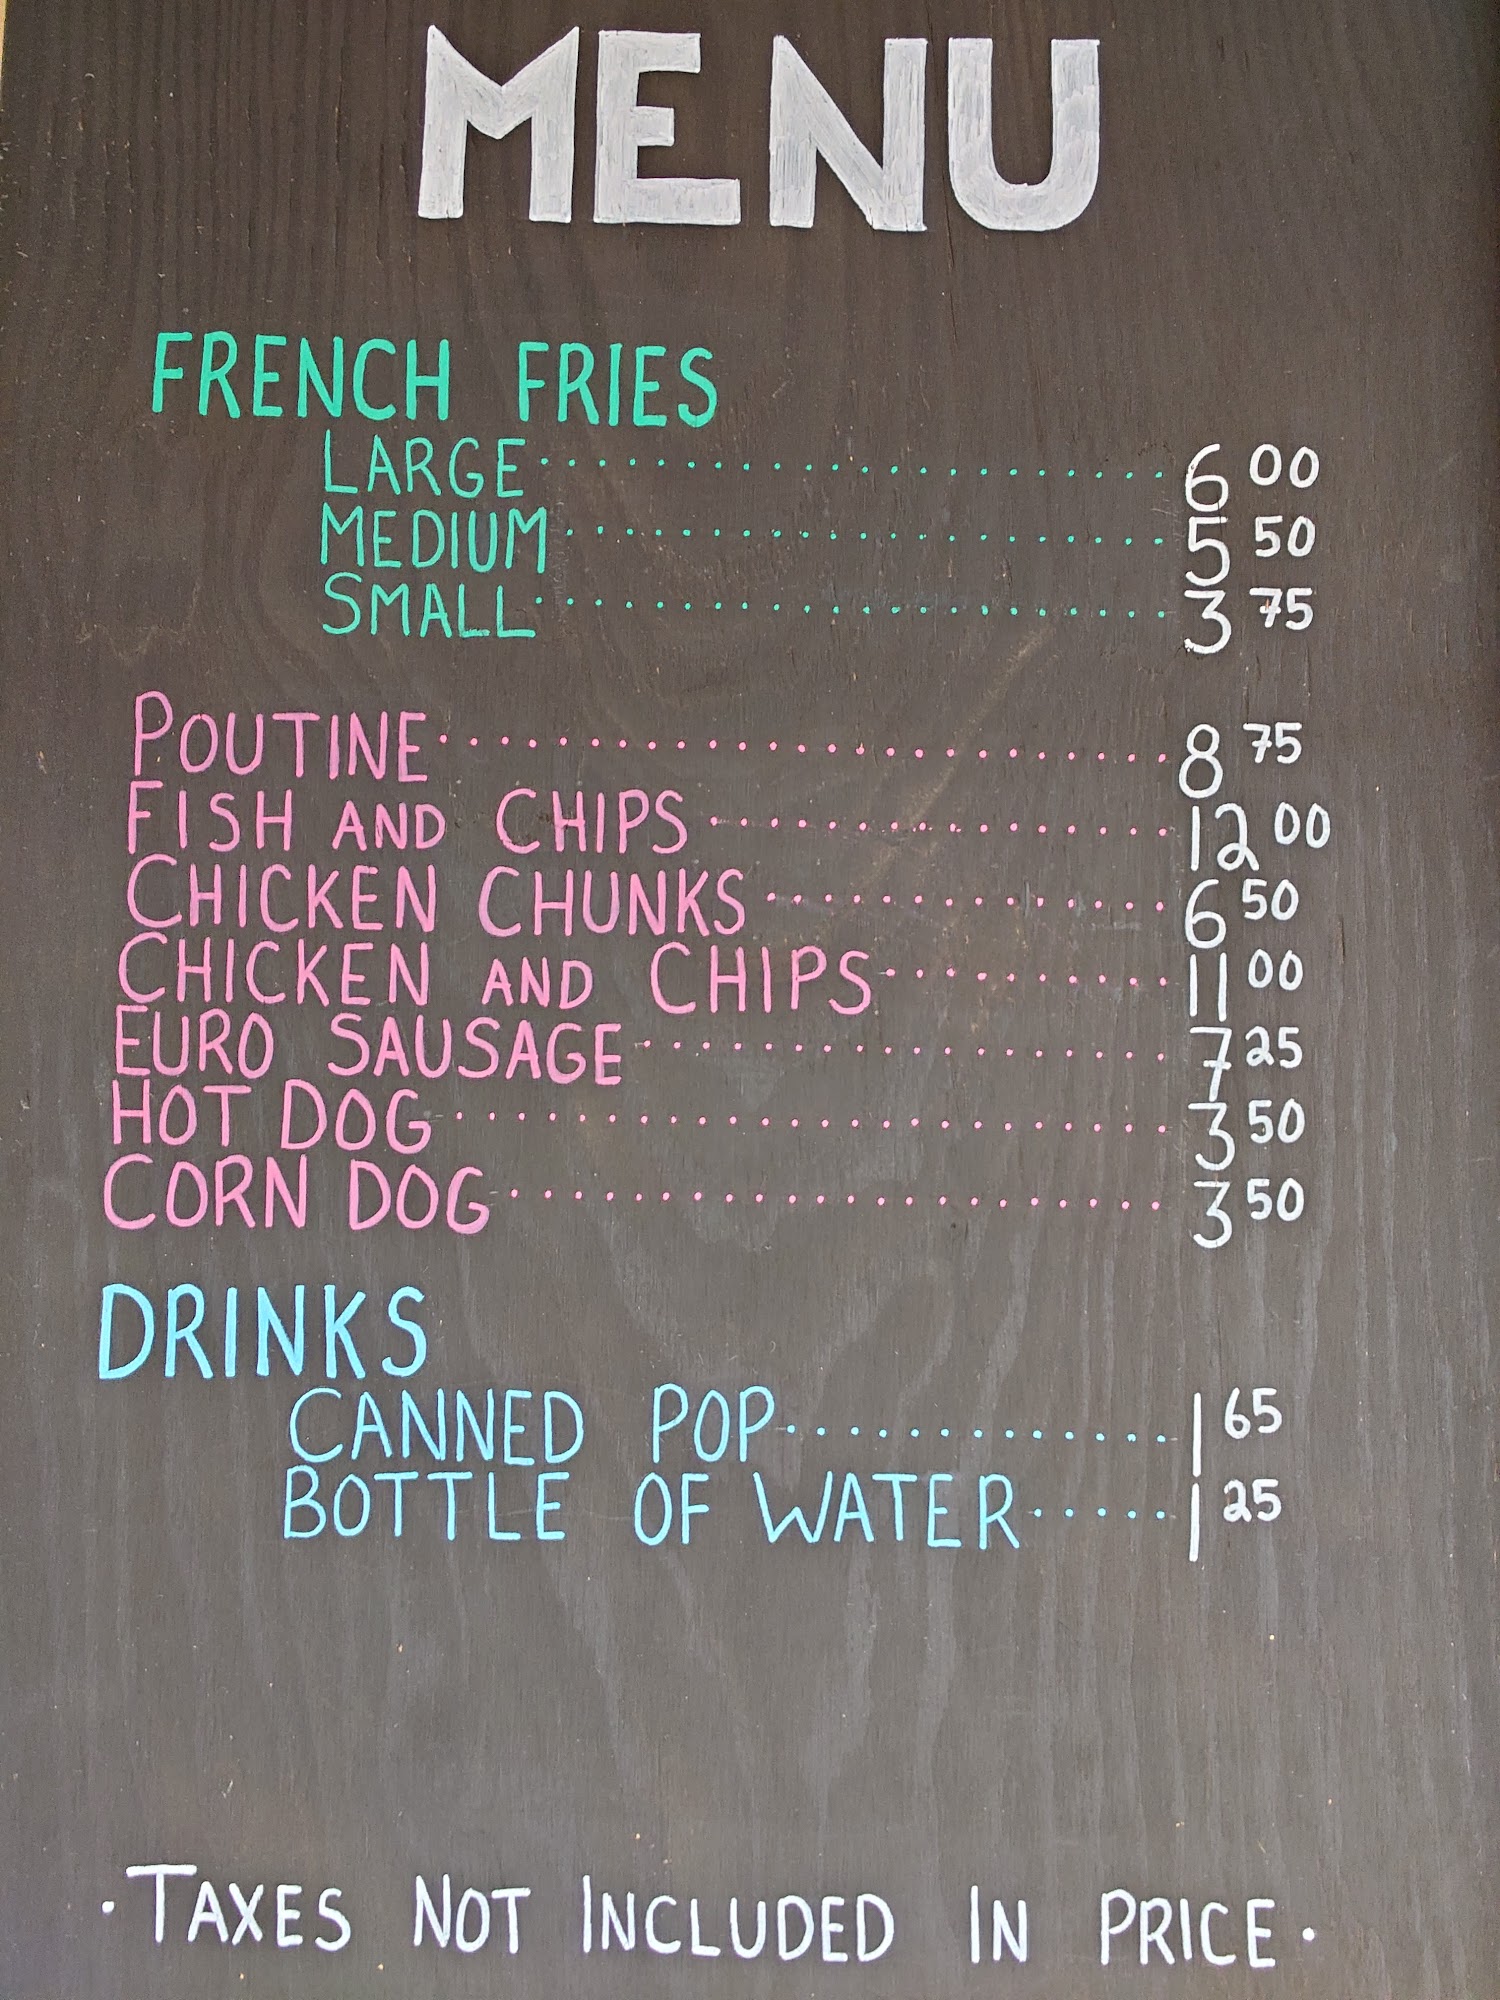 MENU
FRENCH FRIES
LARGE 6 00
MEDIUM 5 50
SMALL 3 75
POUTINE 8 75
FISH AND CHIPS 12 00
CHICKEN CHUNKS 6 50
CHICKEN AND CHIPS 11 00
EURO SAUSAGE 7 25
HOT DOG 3 50
CORN DOG 3 50
DRINKS
CANNED POP 1 65
BOTTLE OF WATER 1 25
· TAXES NOT INCLUDED IN PRICE ·